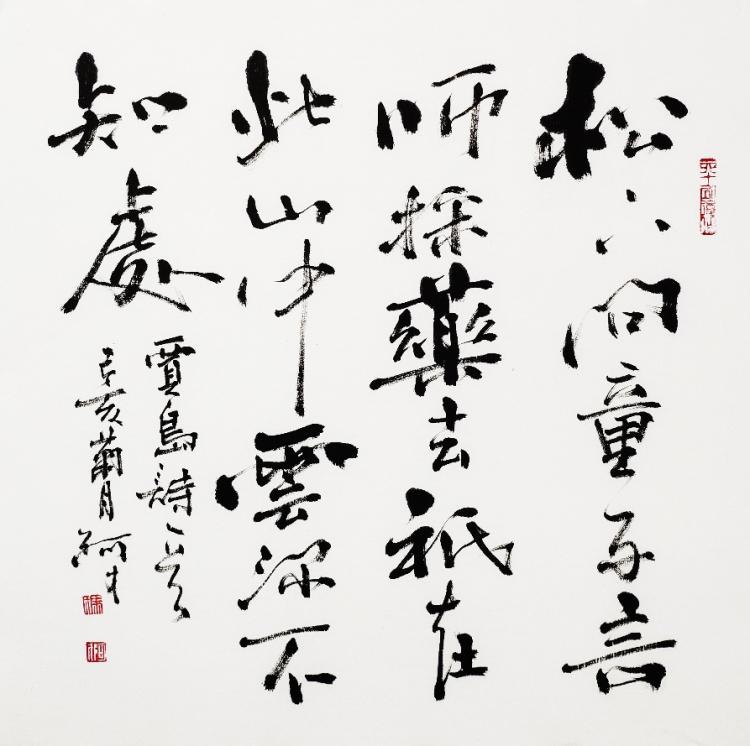 松下問童子言
師採藥去祇在
此山中雲深不
知處
賈島詩一首
己亥蘭月